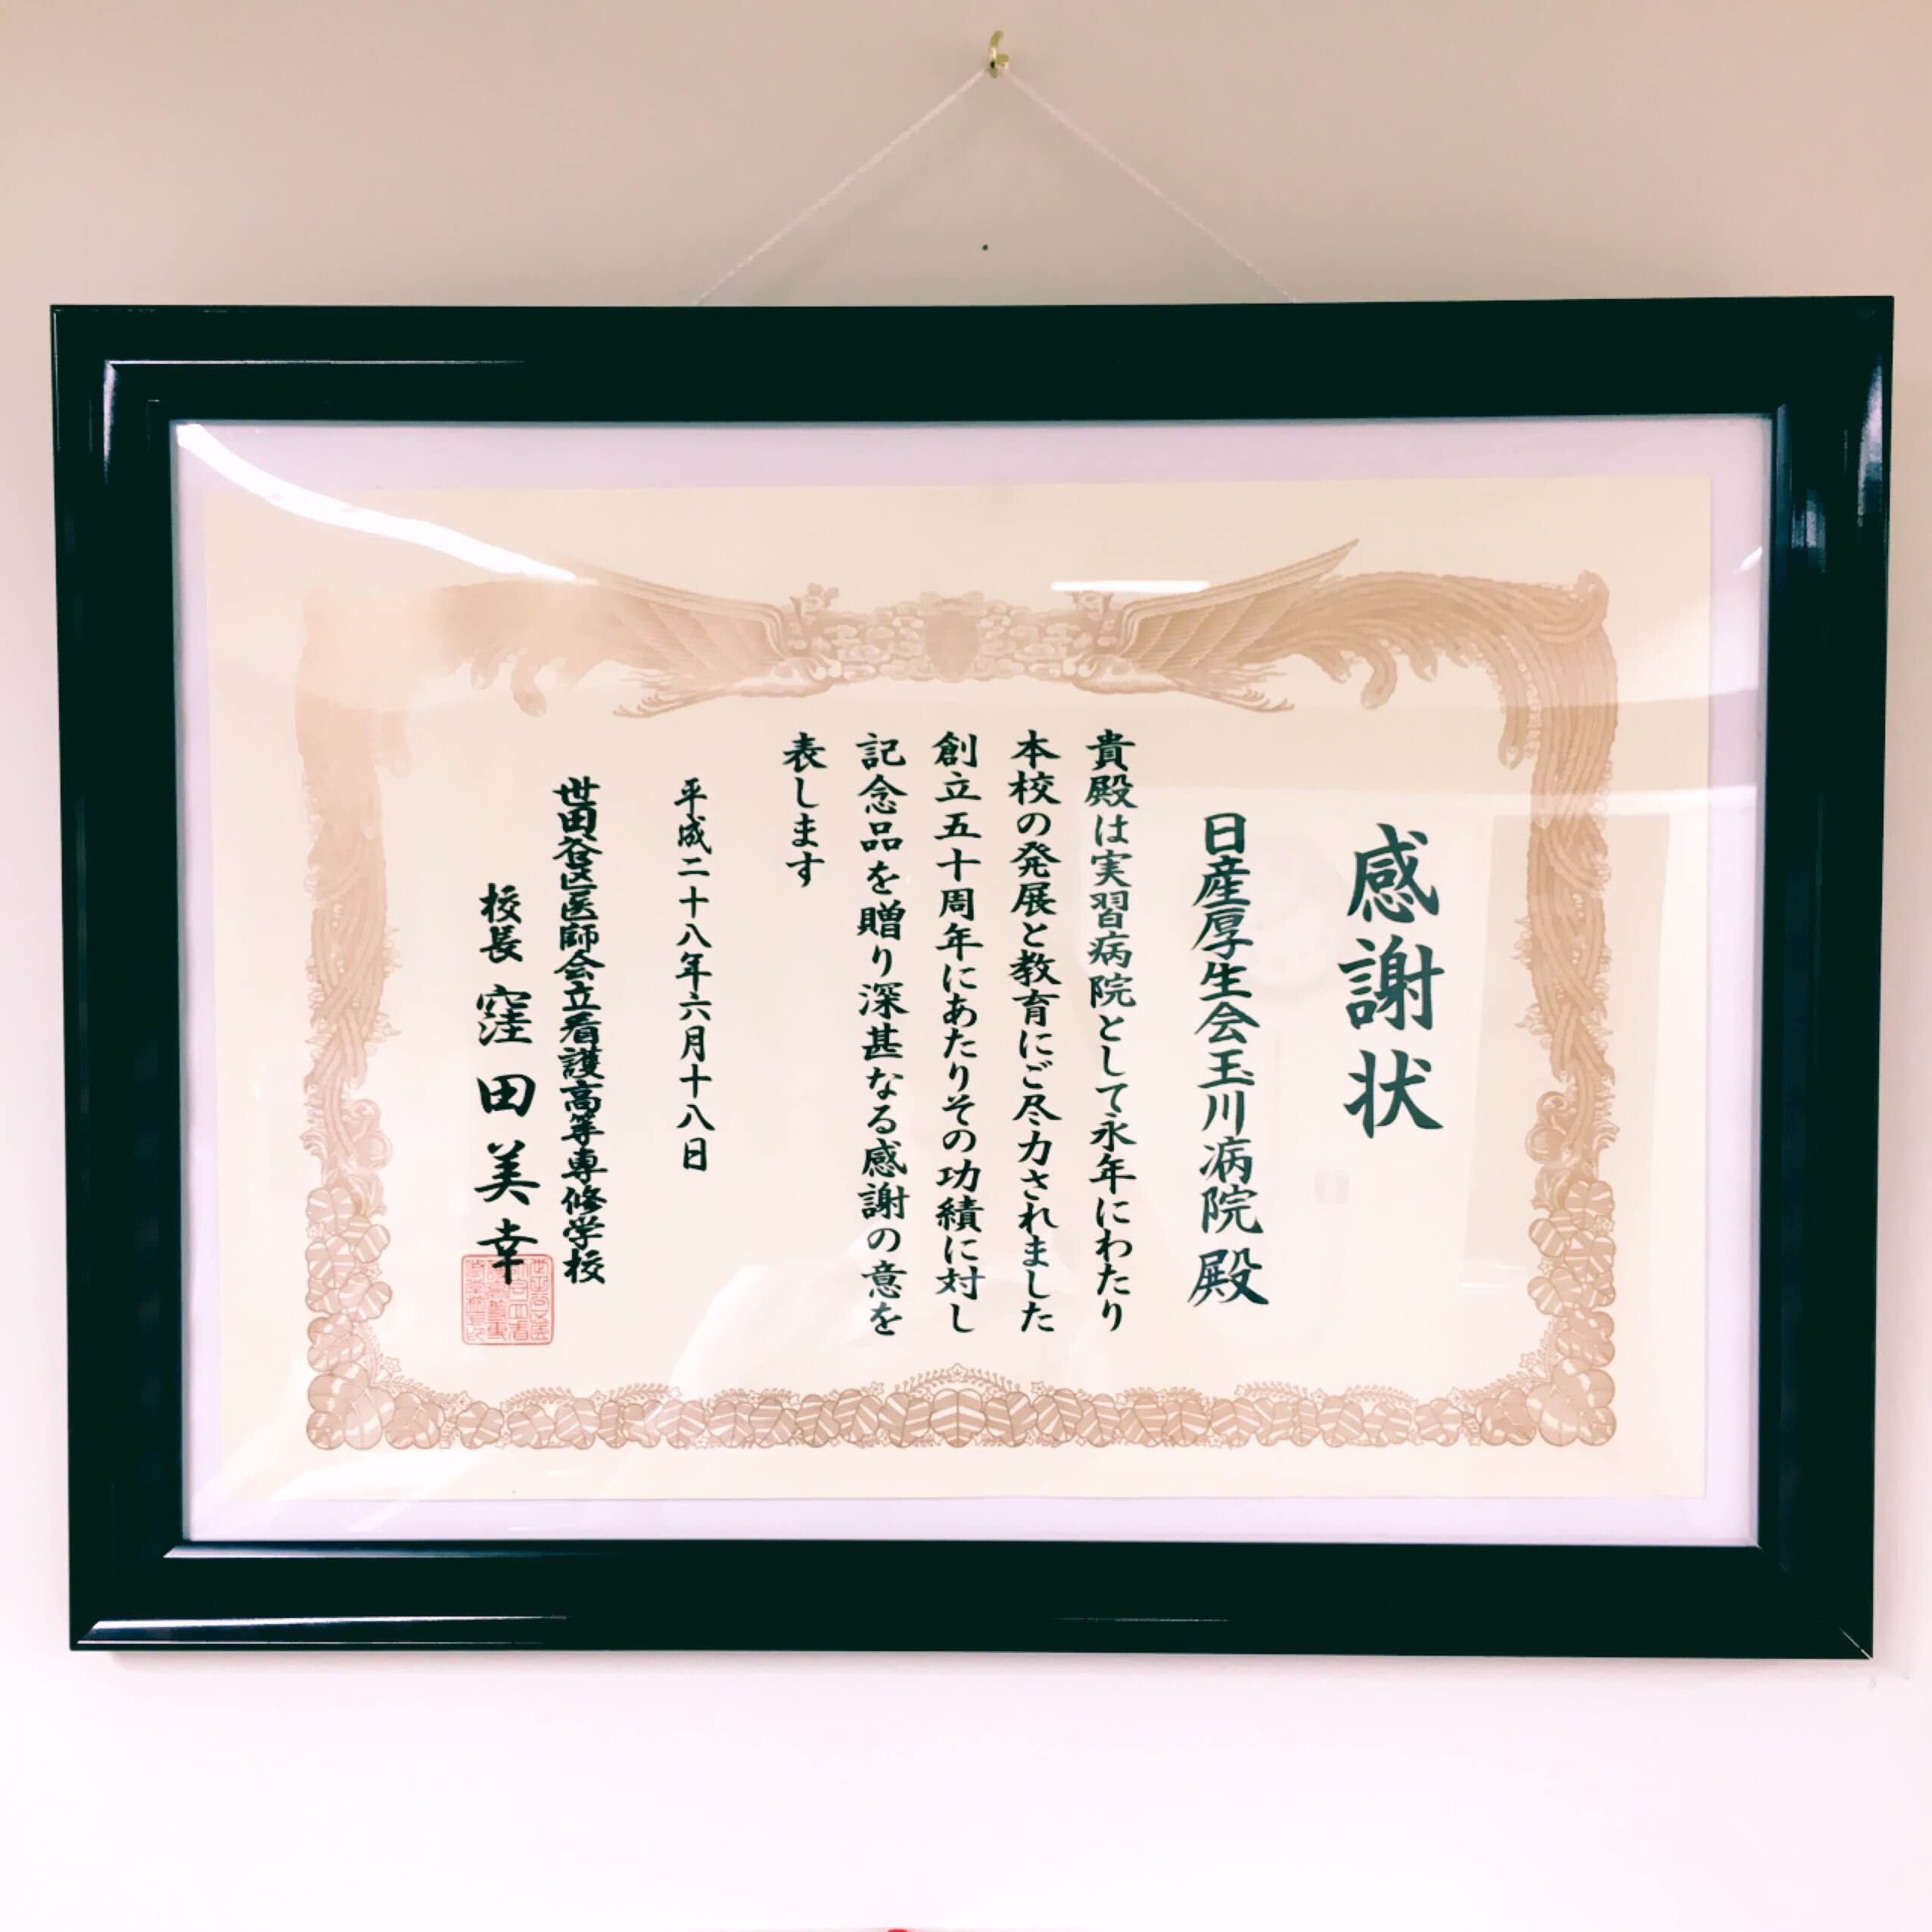 感謝状
日産厚生会玉川病院 殿
貴殿は実習病院として永年にわたり
本校の発展と教育にご尽力されました
創立五十周年にあたりその功績に対し
記念品を贈り深甚なる感謝の意を
表します
平成二十八年六月十八日
世田谷区医師会立看護高等専修学校
校長 窪田美幸